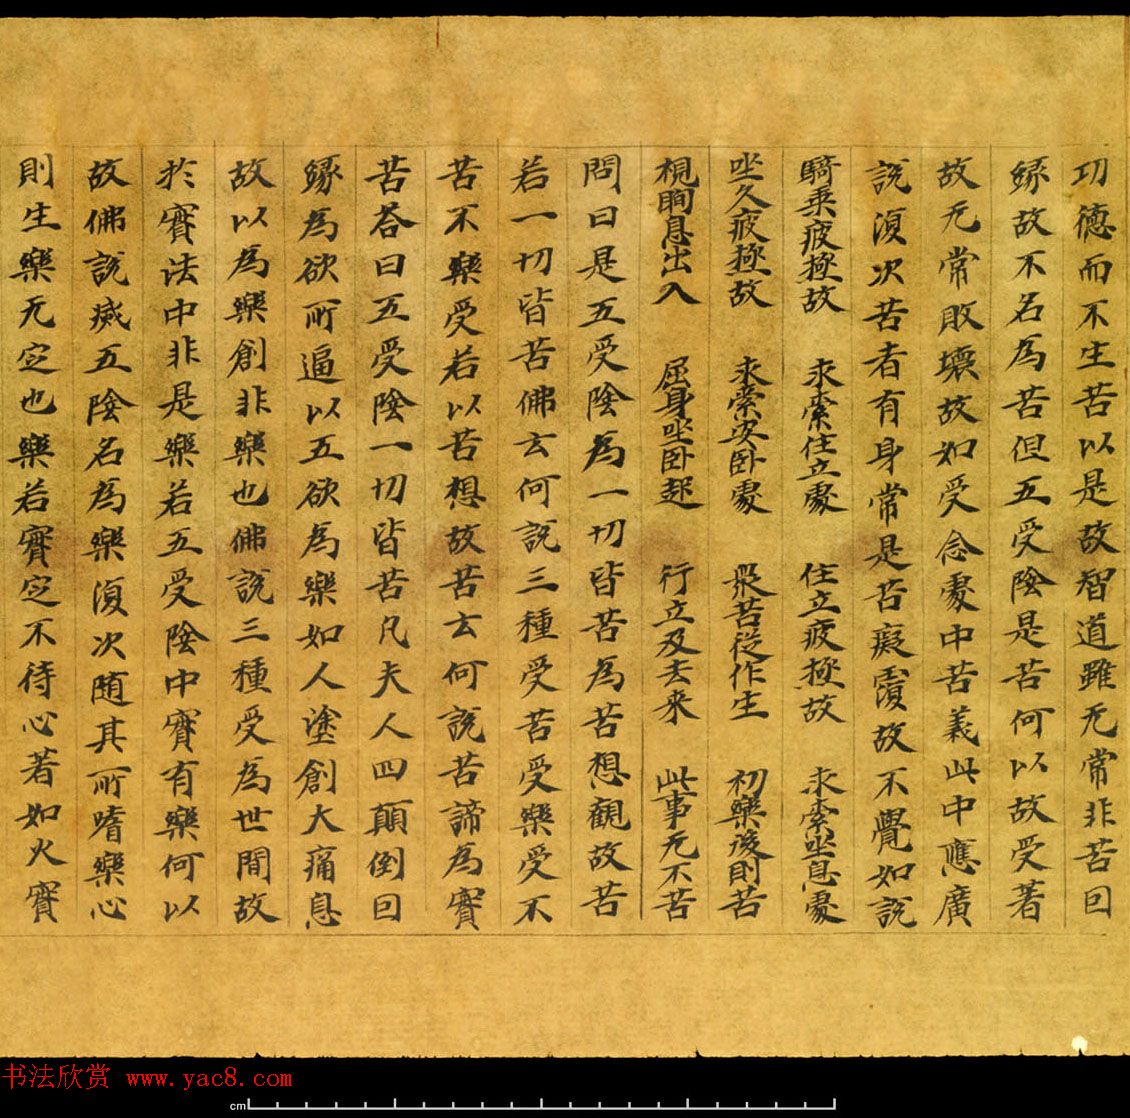 功德而不生苦以是故智道雖无常非苦囙
緣故不名為苦但五受陰是苦何以故受著
故无常敗壞故如受念處中苦義此中應廣
說復次苦者有身常是苦癡覆故不覺如說
騎乘疲極故 求索住立處 住立疲極故 求索坐息處
坐久疲極故 求索安臥處 眾苦從作生 初樂後則苦
視眴息出入 屈身坐臥起 行立及去來 此事无不苦
問曰是五受陰為一切皆苦為苦想觀故苦
若一切皆苦佛云何說三種受苦受樂受不
苦不樂受若以苦想故苦云何說苦諦為實
苦荅曰五受陰一切皆苦凡夫人四顛倒囙
緣為欲所逼以五欲為樂如人塗創大痛息
故以為樂創非樂也佛說三種受為世間故
於實法中非是樂若五受陰中實有樂何以
故佛說滅五陰名為樂復次隨其所嗜樂心
則生樂无定也樂若實定不待心著如火實
书法欣赏 www.yac8.com
cm